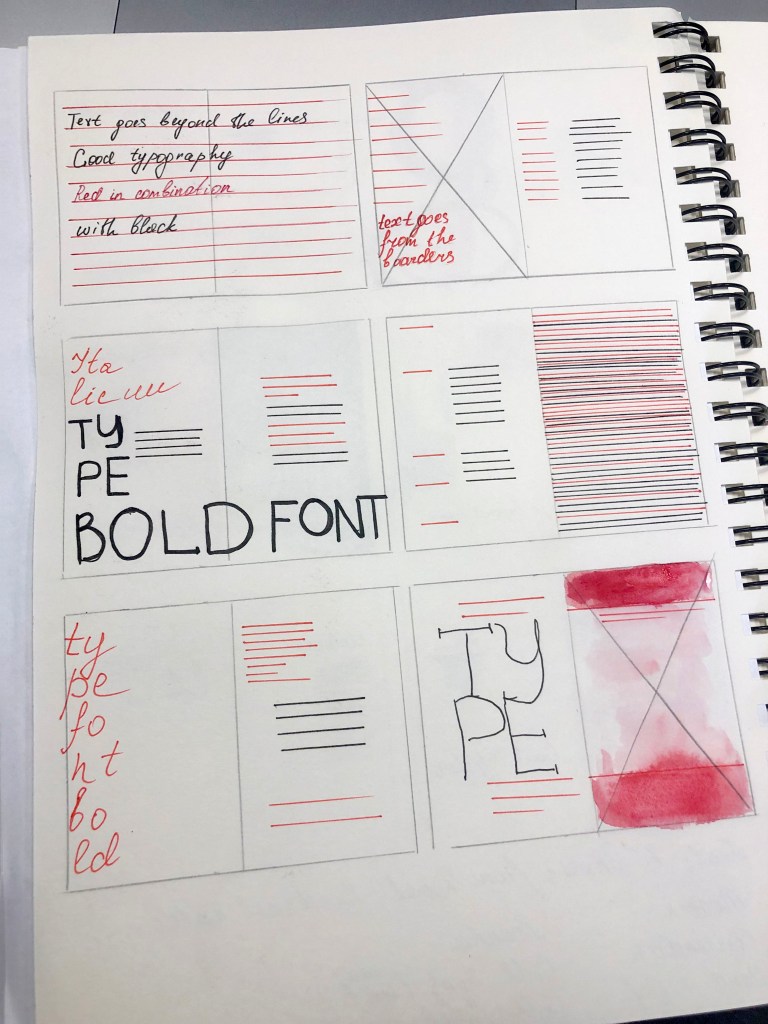 Text goes beyond the lines
Good typography
Red in combination
with black
text goes
from the
boarders
Ita
lic
TY
PE
BOLD FONT
ty
pe
fo
nt
bo
ld
TY
PE